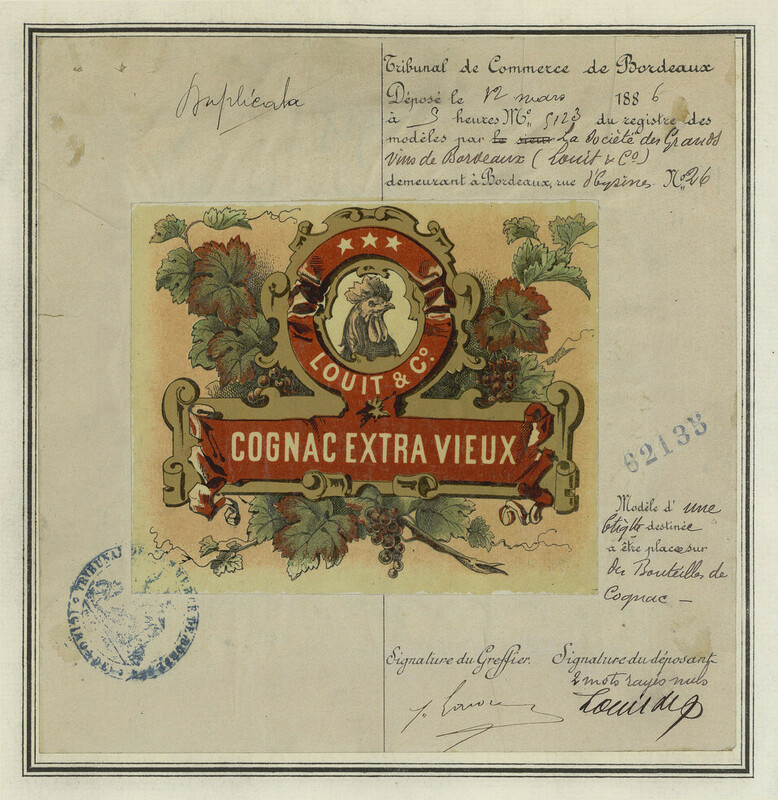 Duplicata
Tribunal de Commerce de Bordeaux
Déposé le 12 mars 1886
à 3 heures Nº 5123 du registre des
modèles par le sieur La Société des Grands
Vins de Bordeaux (Louit & Cº)
demeurant à Bordeaux, rue d'Eysines. Nº 26
LOUIT & Cº.
COGNAC EXTRA VIEUX
62135
Modèle d'une
etiqtte destinée
à être placée sur
des Bouteilles de
Cognac —
TRIBUNAL DE COMMERCE DE BORDEAUX
Signature du Greffier. Signature du déposant
2 mots rayés nuls
Louit & Cº